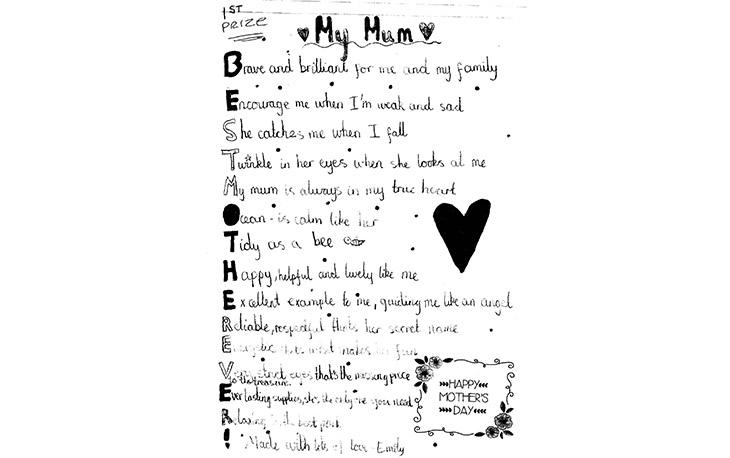 1ST
PRIZE
My Mum
Brave and brilliant for me and my family
Encourage me when I'm weak and sad
She catches me when I fall
Twinkle in her eyes when she looks at me
My mum is always in my true heart
Ocean - is calm like her
Tidy as a bee
Happy, helpful and lively like me
Excellent example to me, guiding me like an angel
Reliable, respectful thats her secret name
Energetic thats what makes her fun
eyes that's the missing piece
to the treasure.
Ever lasting supplies, she's the only one you need
Relaxing is the best part
! Made with lots of love - Emily
HAPPY
MOTHER'S
DAY